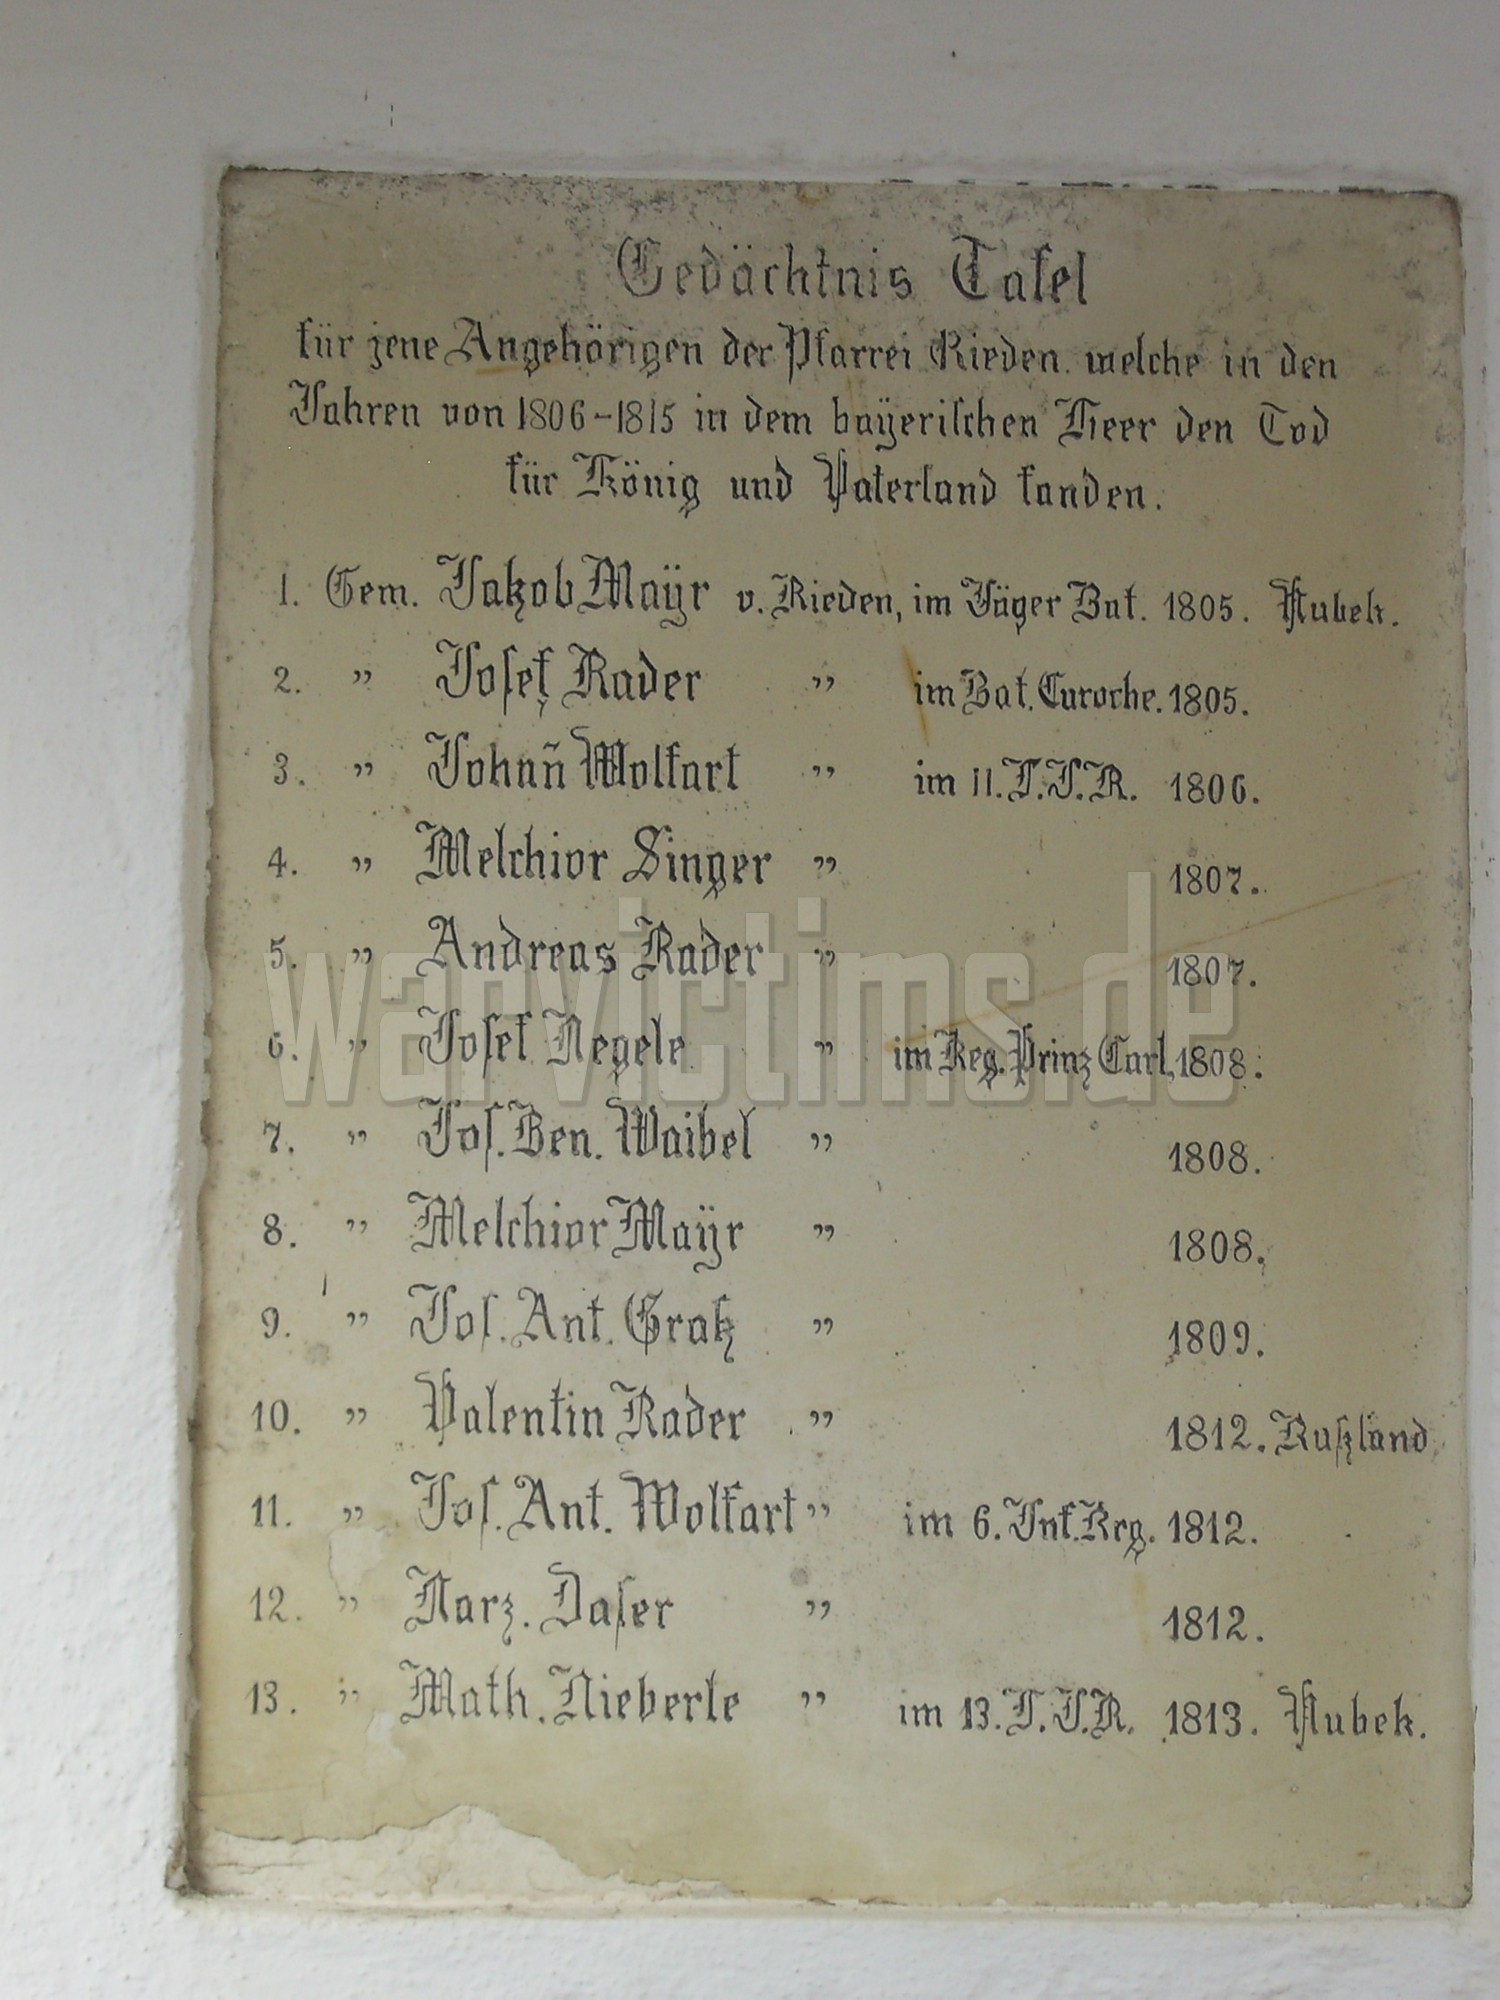 Gedächtnis Tafel
für jene Angehörigen der Pfarrei Rieden welche in den
Jahren von 1806-1815 in dem bayerischen Heer den Tod
für König und Vaterland fanden.
1. Gem. Jakob Maÿr v. Rieden, im Jäger Bat. 1805. Aubek.
2. " Josef Rader " im Bat. Curoche. 1805.
3. " Johan̄ Wolfart " im 11. L.I.R. 1806.
4. " Melchior Singer " 1807.
5. " Andreas Rader " 1807.
warvictims.de
6. " Josef Negele " im Reg. Prinz Carl, 1808.
7. " Jos. Ben. Waibel " 1808.
8. " Melchior Maÿr " 1808.
9. " Jos. Ant. Gratz " 1809.
10. " Valentin Rader " 1812. Rußland
11. " Jos. Ant. Wolfart " im 6. Inf. Reg. 1812.
12. " Narz. Daser " 1812.
13. " Math. Nieberle " im 13. L.I.R. 1813. Aubek.